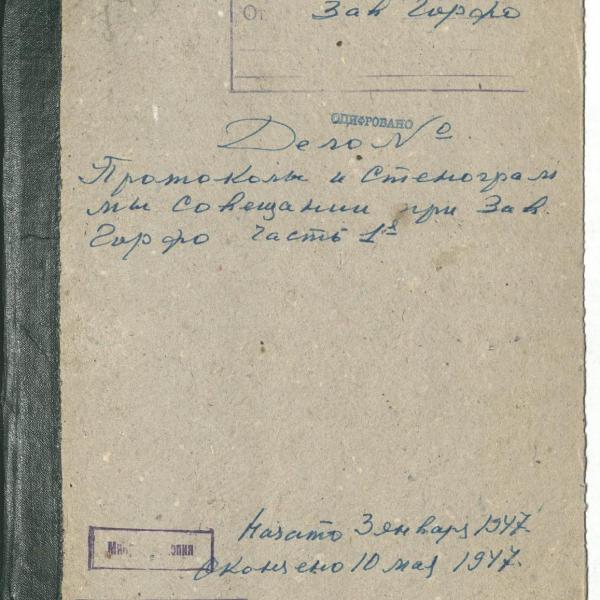 От
Зав Горфо
ОЦИФРОВАНО
Дело №
Протоколы и стенограм
мы совещании при Зав.
Горфо часть 1я
Начато 3 января 1947
Окончено 10 мая 1947.